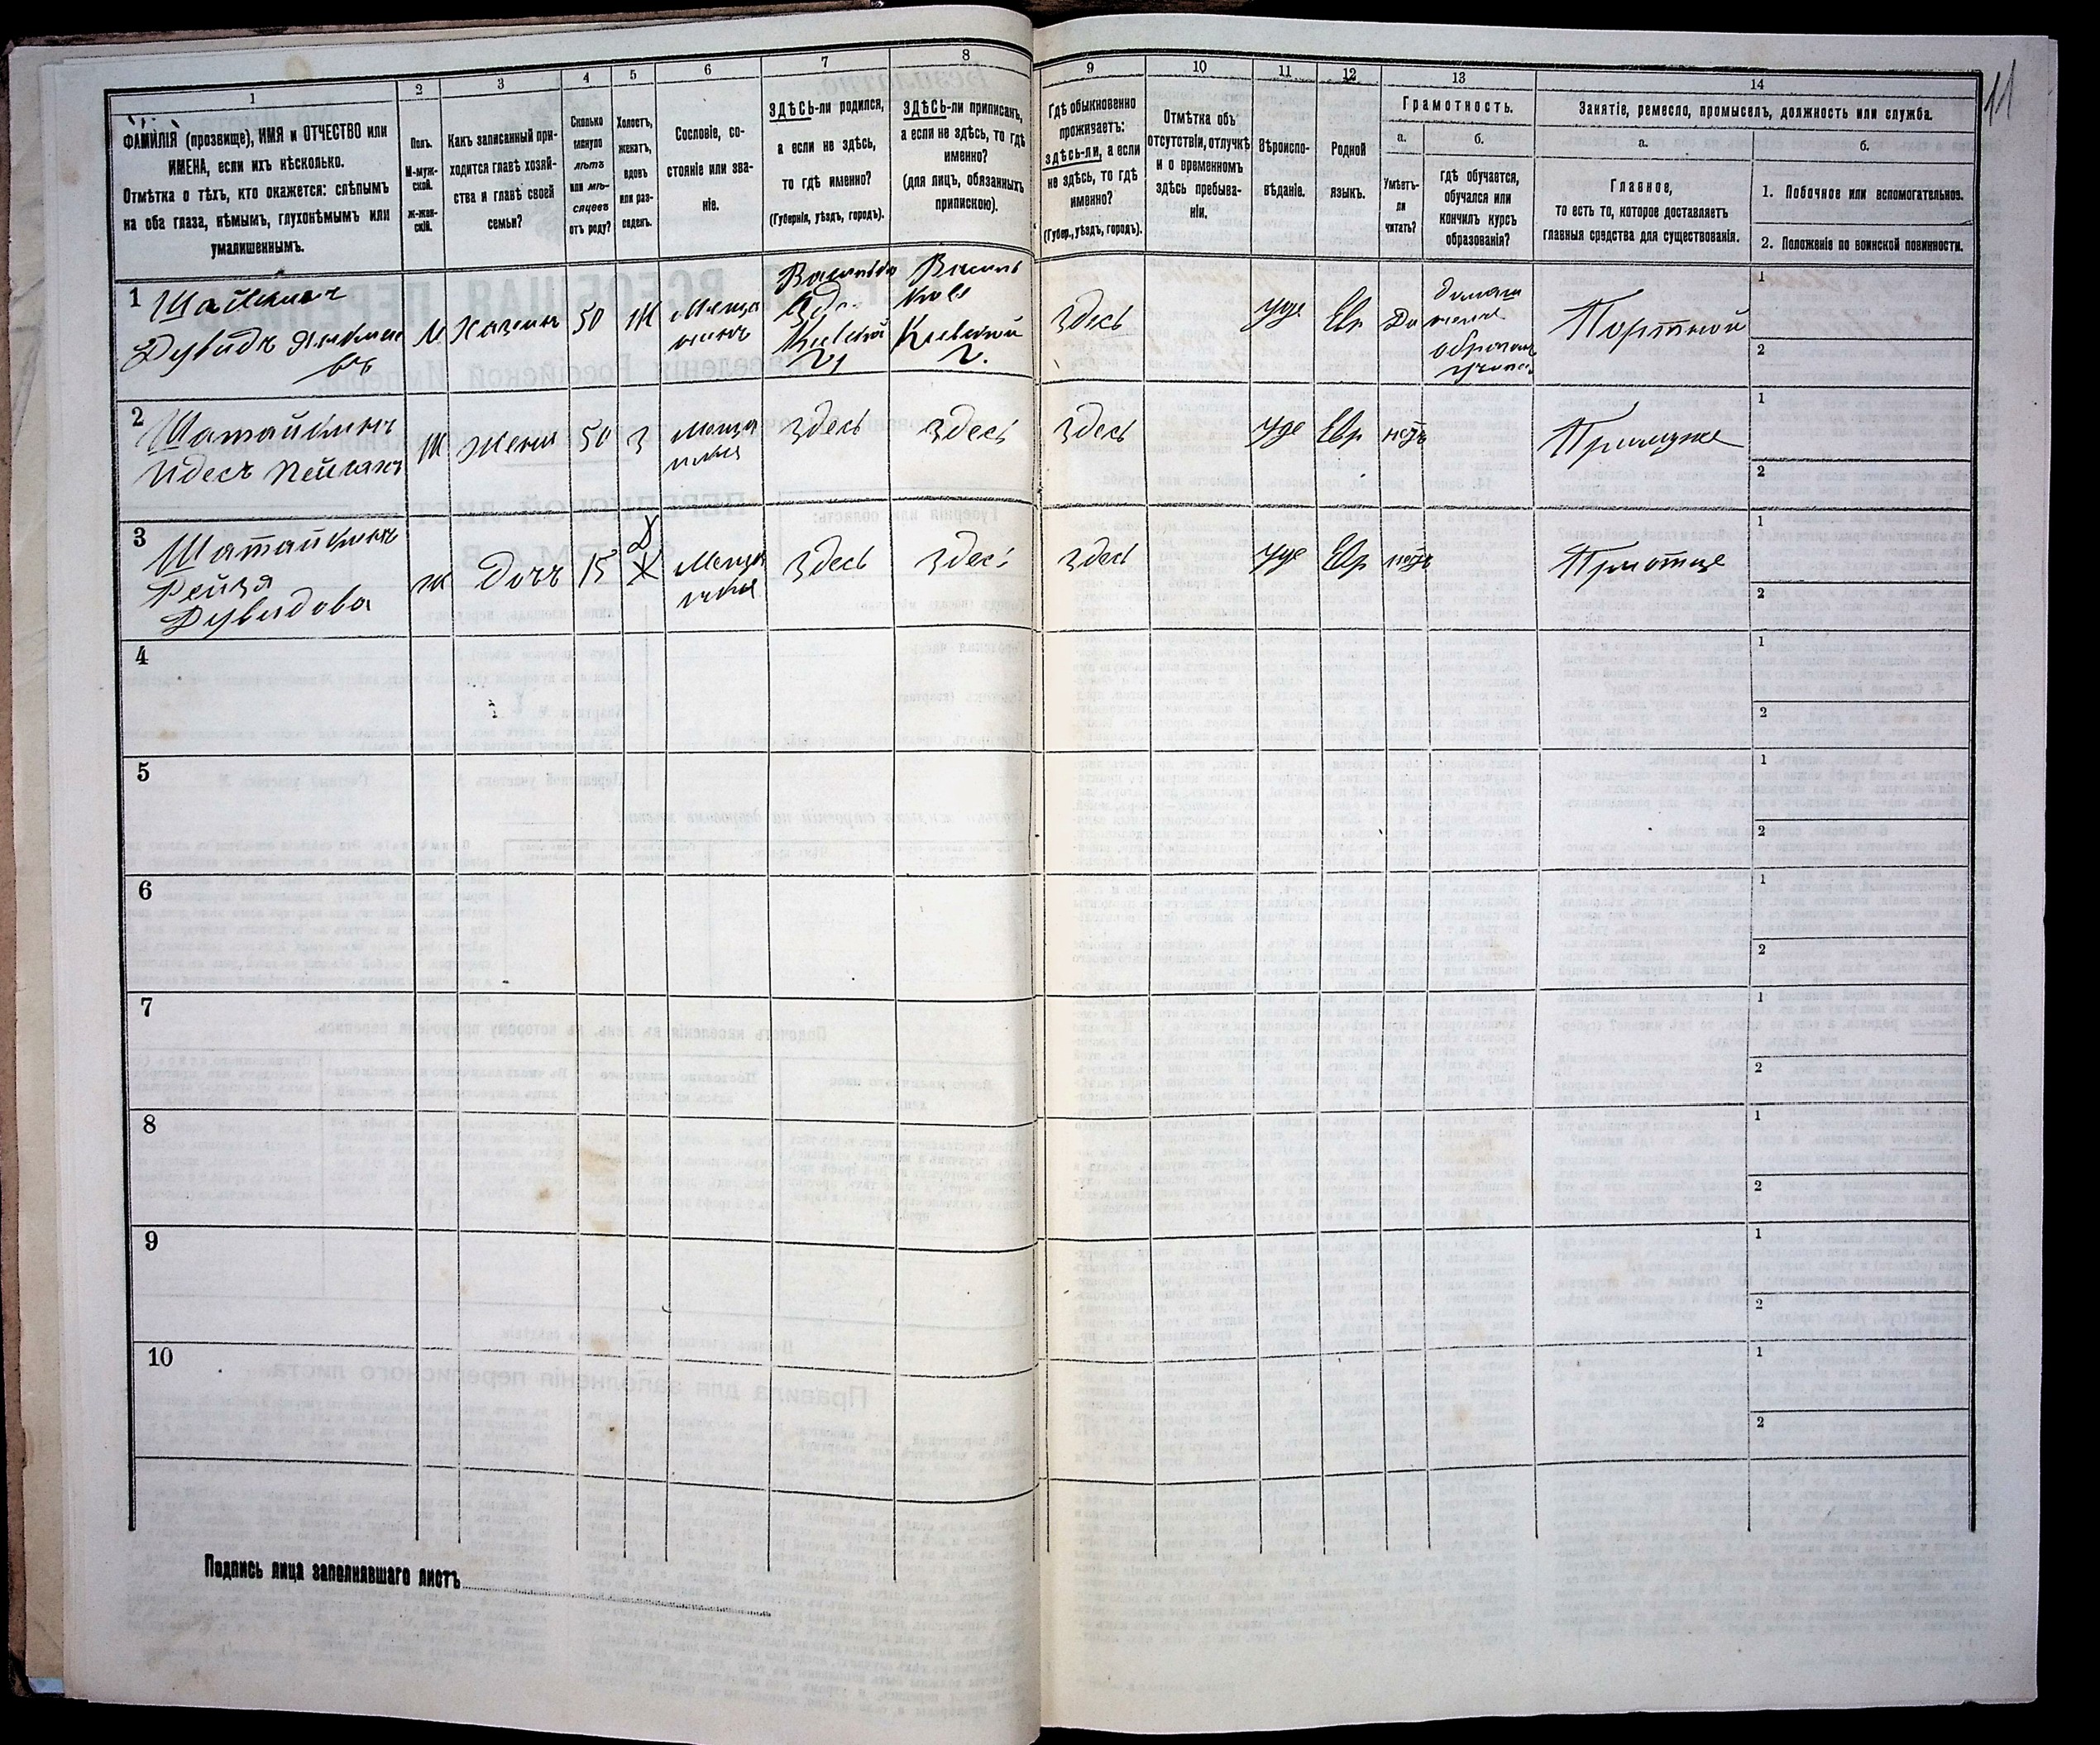 11
1 2 3 4 5 6 7 8 9 10 11 12 13 14
ФАМИЛІЯ (прозвище), ИМЯ и ОТЧЕСТВО или
ИМЕНА, если ихъ нѣсколько.
Отмѣтка о тѣхъ, кто окажется: слѣпымъ
на оба глаза, нѣмымъ, глухонѣмымъ или
умалишеннымъ.
Полъ.
М-муж-
ской.
ж-жен-
скій.
Какъ записанный при-
ходится главѣ хозяй-
ства и главѣ своей
семьи?
Сколько
минуло
лѣтъ
или мѣ-
сяцевъ
отъ роду?
Холостъ,
женатъ,
вдовъ
или раз-
веденъ.
Сословіе, со-
стояніе или зва-
ніе.
ЗДѢСЬ-ли родился,
а если не здѣсь,
то гдѣ именно?
(Губернія, уѣздъ, городъ).
ЗДѢСЬ-ли приписанъ,
а если не здѣсь, то гдѣ
именно?
(для лицъ, обязанныхъ
припискою).
Гдѣ обыкновенно
проживаетъ:
здѣсь-ли, а если
не здѣсь, то гдѣ
именно?
(Губер., уѣздъ, городъ).
Отмѣтка объ
отсутствіи, отлучкѣ
и о временномъ
здѣсь пребыва-
ніи.
Вѣроиспо-
вѣданіе.
Родной
языкъ.
Грамотность.
а. б.
Умѣетъ-
ли
читать?
гдѣ обучается,
обучался или
кончилъ курсъ
образованія?
Занятіе, ремесло, промыселъ, должность или служба.
а. б.
Главное,
то есть то, которое доставляетъ
главныя средства для существованія.
1. Побочное или вспомогательное.
2. Положеніе по воинской повинности.
1
Дувидъ
М Хазяинъ 50 Ж
Кіевской
г.
Кіевской
г.
Здесь Іуде Евр Да
Портной
1
2
2 Шатайкинъ
Идесъ
Ж Жена 50 З
Здесь Здесь Здесь Іуде Евр нетъ
При муже
1
2
3 Шатайкинъ
Рейзя
Дувидова
ж Дочь 15
Здесь Здесь Здесь Іуде Евр нетъ
При отце
1
2
4
1
2
5
1
2
6
1
2
7
1
2
8
1
2
9
1
2
10
1
2
Подпись лица заполнявшаго листъ